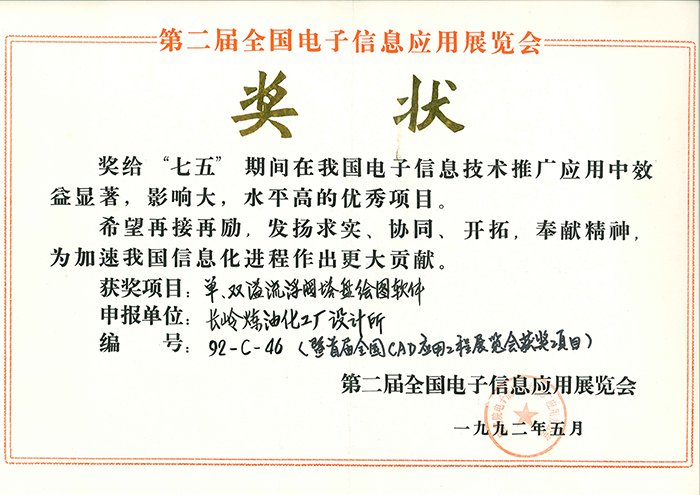 第二届全国电子信息应用展览会
奖 状
奖给“七五”期间在我国电子信息技术推广应用中效
益显著，影响大，水平高的优秀项目。
希望再接再励，发扬求实、协同、开拓，奉献精神，
为加速我国信息化进程作出更大贡献。
获奖项目：单、双溢流浮阀塔盘绘图软件
申报单位：长岭炼油化工厂设计所
编 号：92-C-46（暨首届全国CAD应用工程展览会获奖项目）
第二届全国电子信息应用展览会
一九九二年五月